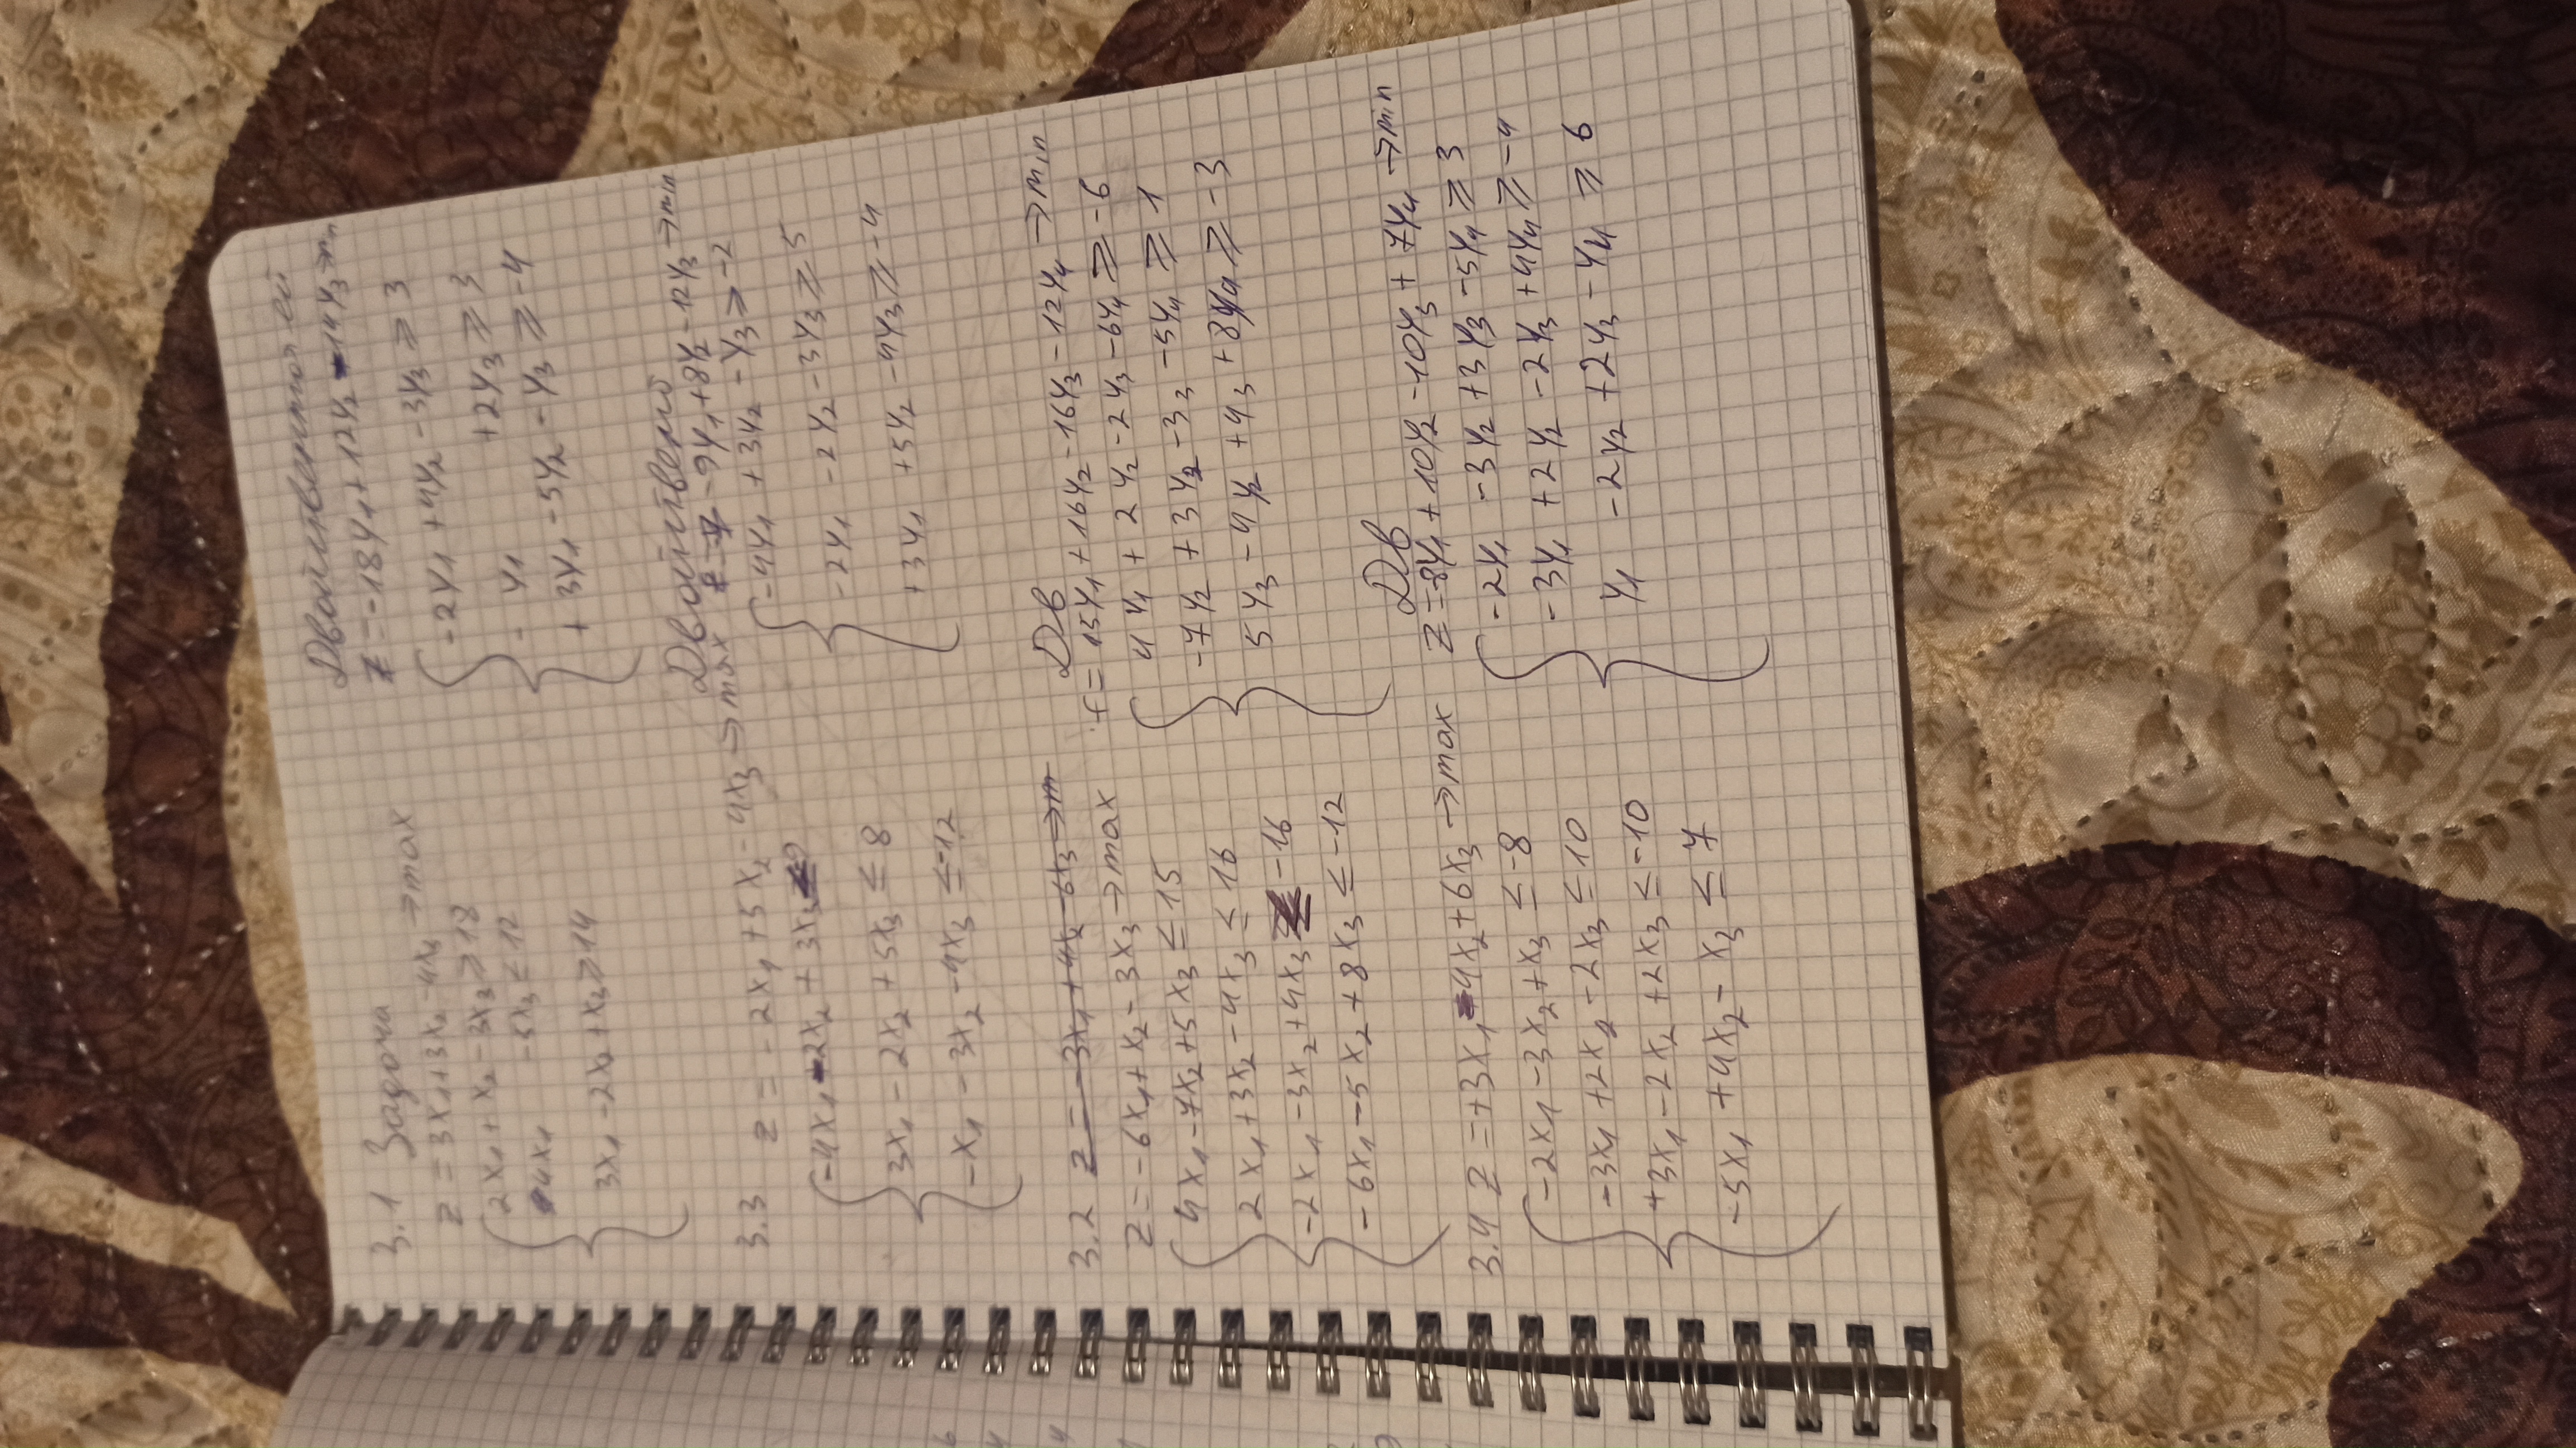 3.1 Задача
z = 3x₁+3x₂-4x₃ →max
2x₁+x₂-3x₃≥18
4x₁ -5x₃≤12
3x₁-2x₂+x₃≥14
Двойственная ей
z =-18y₁+12y₂-14y₃→min
-2y₁ +4y₂ -3y₃ ≥ 3
- y₁ +2y₃ ≥ 3
+ 3y₁ -5y₂ -y₃ ≥ -4
3.3 z = -2x₁ +5x₂ -4x₃ →max
-4x₁ -2x₂ + 3x₃ ≤
3x₁ -2x₂ +5x₃ ≤ 8
-x₁ -3x₂ -4x₃ ≤ -12
Двойствено
-9y₁+8y₂-12y₃→min
-4y₁ +3y₂ -y₃ ≥ -2
-2y₁ -2y₂ -3y₃ ≥ 5
+3y₁ +5y₂ -4y₃ ≥ -4
3.2 z = -3x₁ +4x₂ -6x₃ →m
z = -6x₁+x₂ -3x₃ →max
4x₁ -7x₂+5x₃ ≤ 15
2x₁+3x₂ -4x₃ ≤ 16
-2x₁ -3x₂+4x₃ -16
-6x₁ -5x₂ +8x₃ ≤ -12
Дв
f = 15y₁+16y₂-16y₃-12y₄ →min
4y₁ + 2y₂ -2y₃ -6y₄ ≥ -6
-7y₂ +3y₂ -3₃ -5y₄ ≥ 1
5y₃ -4y₂ +4₃ +8y₄ ≥ -3
3.4 z = +3x₁ -4x₂+6x₃ →max
-2x₁ -3x₂+x₃ ≤ -8
-3x₁ +2x₂ -2x₃ ≤ 10
+3x₁ -2x₂ +2x₃ ≤ -10
-5x₁ +4x₂ - x₃ ≤ 7
Дв
z =-8y₁+10y₂-10y₃+ 7y₄ →min
-2y₁ -3y₂ +3y₃ -5y₄ ≥ 3
-3y₁ +2y₂ -2y₃ +4y₄ ≥ -4
y₁ -2y₂ +2y₃ -y₄ ≥ 6